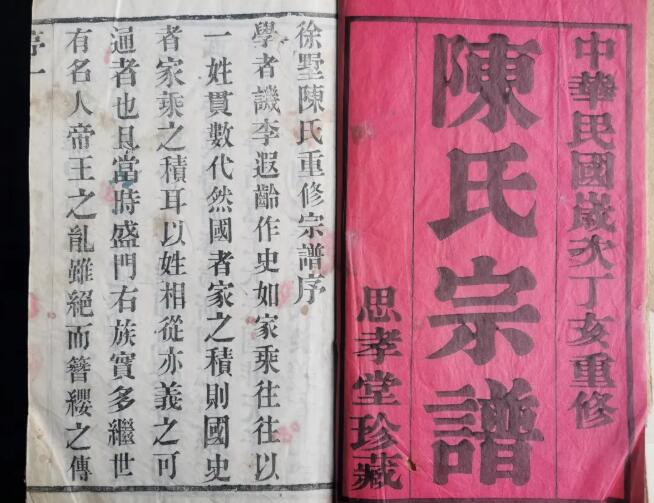 中華民國歲次丁亥重修
陳氏宗譜
思孝堂珍藏
徐墅陳氏重修宗譜序
學者譏李遐齡作史如家乘往往以
一姓貫數代然國者家之積則國史
者家乘之積耳以姓相從亦義之可
通者也且當時盛門右族實多繼世
有名人帝王之亂雖絕而簪纓之傳
序一